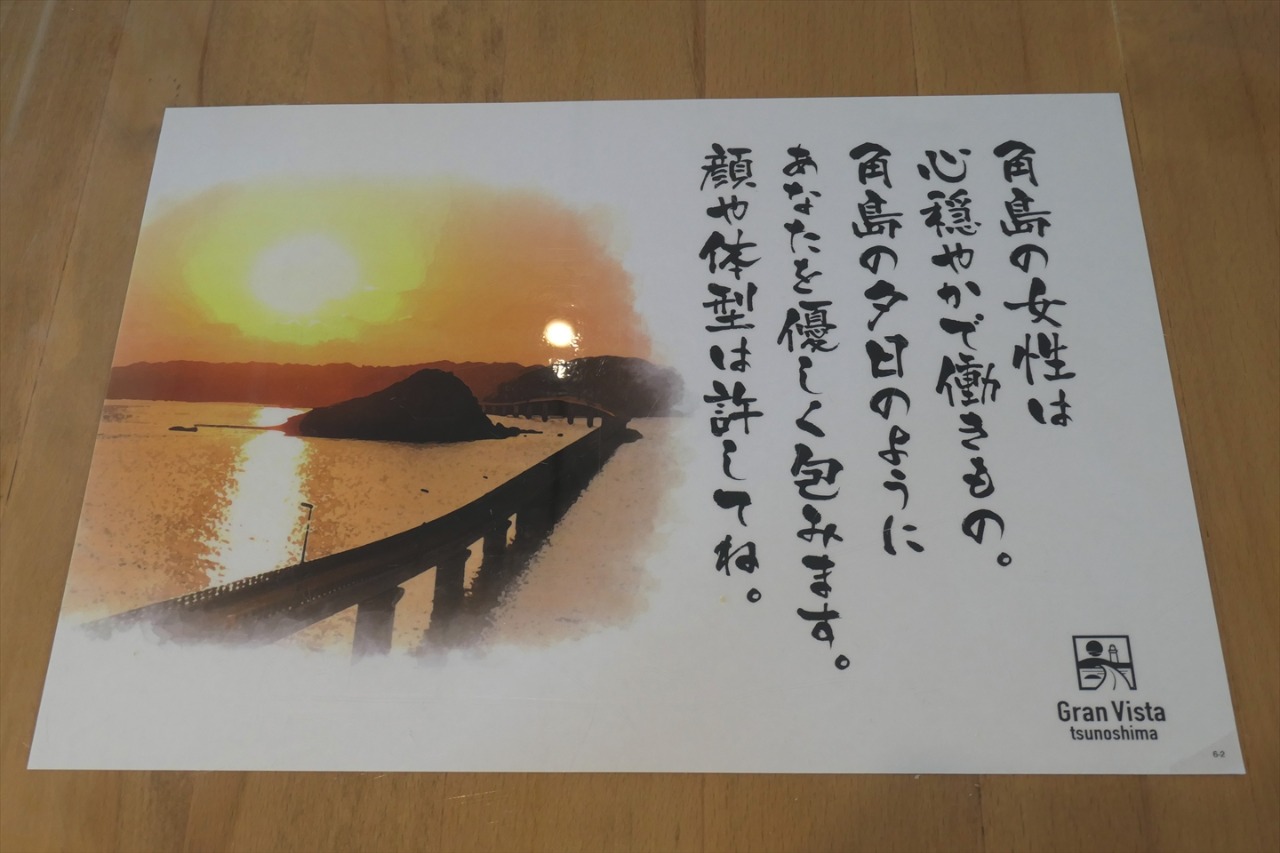 角島の女性は
心穏やかで働きもの。
角島の夕日のように
あなたを優しく包みます。
顔や体型は許してね。
Gran Vista
tsunoshima
6-2